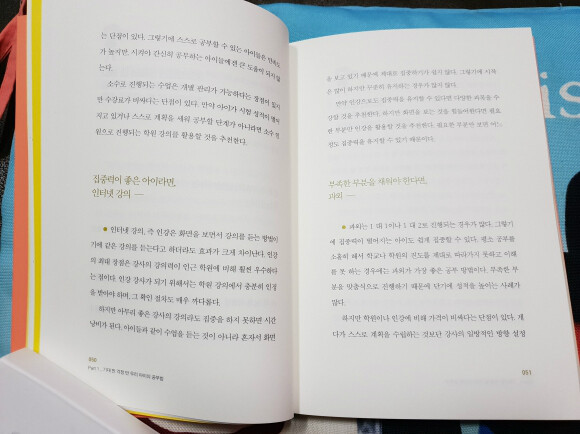 는 단점이 있다. 그렇기에 스스로 공부할 수 있는 아이들은 만족도
가 높지만, 시켜야 간신히 공부하는 아이들에겐 큰 도움이 되지 않
는다.
소수로 진행되는 수업은 개별 관리가 가능하다는 장점이 있지
만 수강료가 비싸다는 단점이 있다. 만약 아이가 시험 성적이 맹
지고 있거나 스스로 계획을 세워 공부할 단계가 아니라면 소수 정
원으로 진행되는 학원 강의를 활용할 것을 추천한다.
집중력이 좋은 아이라면,
인터넷 강의 —
● 인터넷 강의, 즉 인강은 화면을 보면서 강의를 듣는 형태이
기에 같은 강의를 듣는다고 하더라도 효과가 크게 차이난다. 인강
의 최대 장점은 강사의 강의력이 인근 학원에 비해 훨씬 우수하다
는 점이다. 인강 강사가 되기 위해서는 학원 강의에서 충분히 인정
을 받아야 하며, 그 확인 절차도 매우 까다롭다.
하지만 아무리 좋은 강사의 강의라도 집중을 하지 못하면 시간
낭비가 된다. 아이들과 같이 수업을 듣는 것이 아니라 혼자서 화면
050
Part 1
을 보고 있기 때문에 제대로 집중하기가 쉽지 않다. 그렇기에 시작
은 많이 하지만 꾸준히 유지하는 경우가 많지 않다.
만약 인강으로도 집중력을 유지할 수 있다면 다양한 과목을 수
강할 것을 추천한다. 하지만 화면을 보는 것을 힘들어한다면 필요
한 부분만 인강을 활용할 것을 추천한다. 필요한 부분만 보면 어느
정도 집중력을 유지할 수 있기 때문이다.
부족한 부분을 채워야 한다면,
과외 —
● 과외는 1 대 1이나 1 대 2로 진행되는 경우가 많다. 그렇기
에 집중력이 떨어지는 아이도 쉽게 집중할 수 있다. 평소 공부를
소홀히 해서 학교나 학원의 진도를 제대로 따라가지 못하고 이해
를 못 하는 경우에는 과외가 가장 좋은 공부 방법이다. 부족한 부
분을 맞춤식으로 진행하기 때문에 단기에 성적을 높이는 사례가
많다.
하지만 학원이나 인강에 비해 가격이 비싸다는 단점이 있다. 게
다가 스스로 계획을 수립하는 것보단 강사의 일방적인 방향 설정
051
is